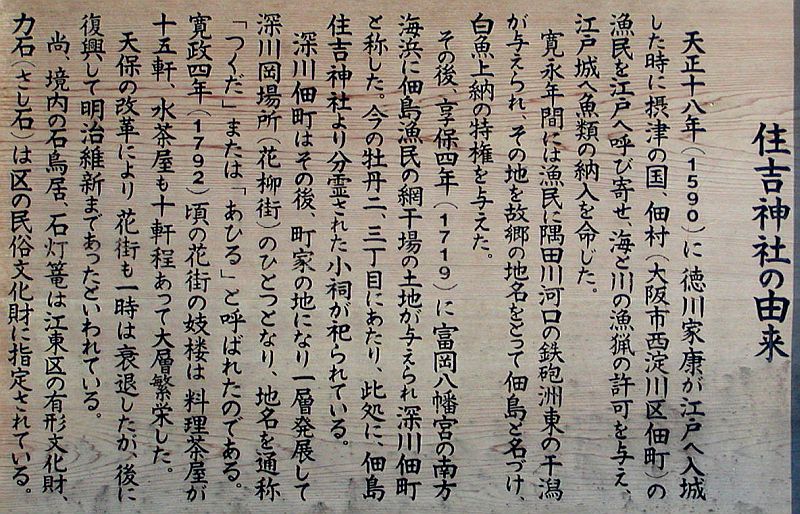 住吉神社の由来
天正十八年（1590）に徳川家康が江戸へ入城
した時に摂津の国、佃村（大阪市西淀川区佃町）の
漁民を江戸へ呼び寄せ、海と川の漁猟の許可を与え、
江戸城へ魚類の納入を命じた。
寛永年間には漁民に隅田川河口の鉄砲洲東の干潟
が与えられ、その地を故郷の地名をとって佃島と名づけ、
白魚上納の特権を与えた。
その後、享保四年（1719）に富岡八幡宮の南方
海浜に佃島漁民の網干場の土地が与えられ深川佃町
と称した。今の牡丹二、三丁目にあたり、此処に、佃島
住吉神社より分霊された小祠が祀られている。
深川佃町はその後、町家の地になり一層発展して
深川岡場所（花柳街）のひとつとなり、地名を通称
「つくだ」または「あひる」と呼ばれたのである。
寛政四年（1792）頃の花街の妓楼は料理茶屋が
十五軒、水茶屋も十軒程あって大層繁栄した。
天保の改革により花街も一時は衰退したが、後に
復興して明治維新まであったといわれている。
尚、境内の石鳥居、石灯篭は江東区の有形文化財、
力石（さし石）は区の民俗文化財に指定されている。